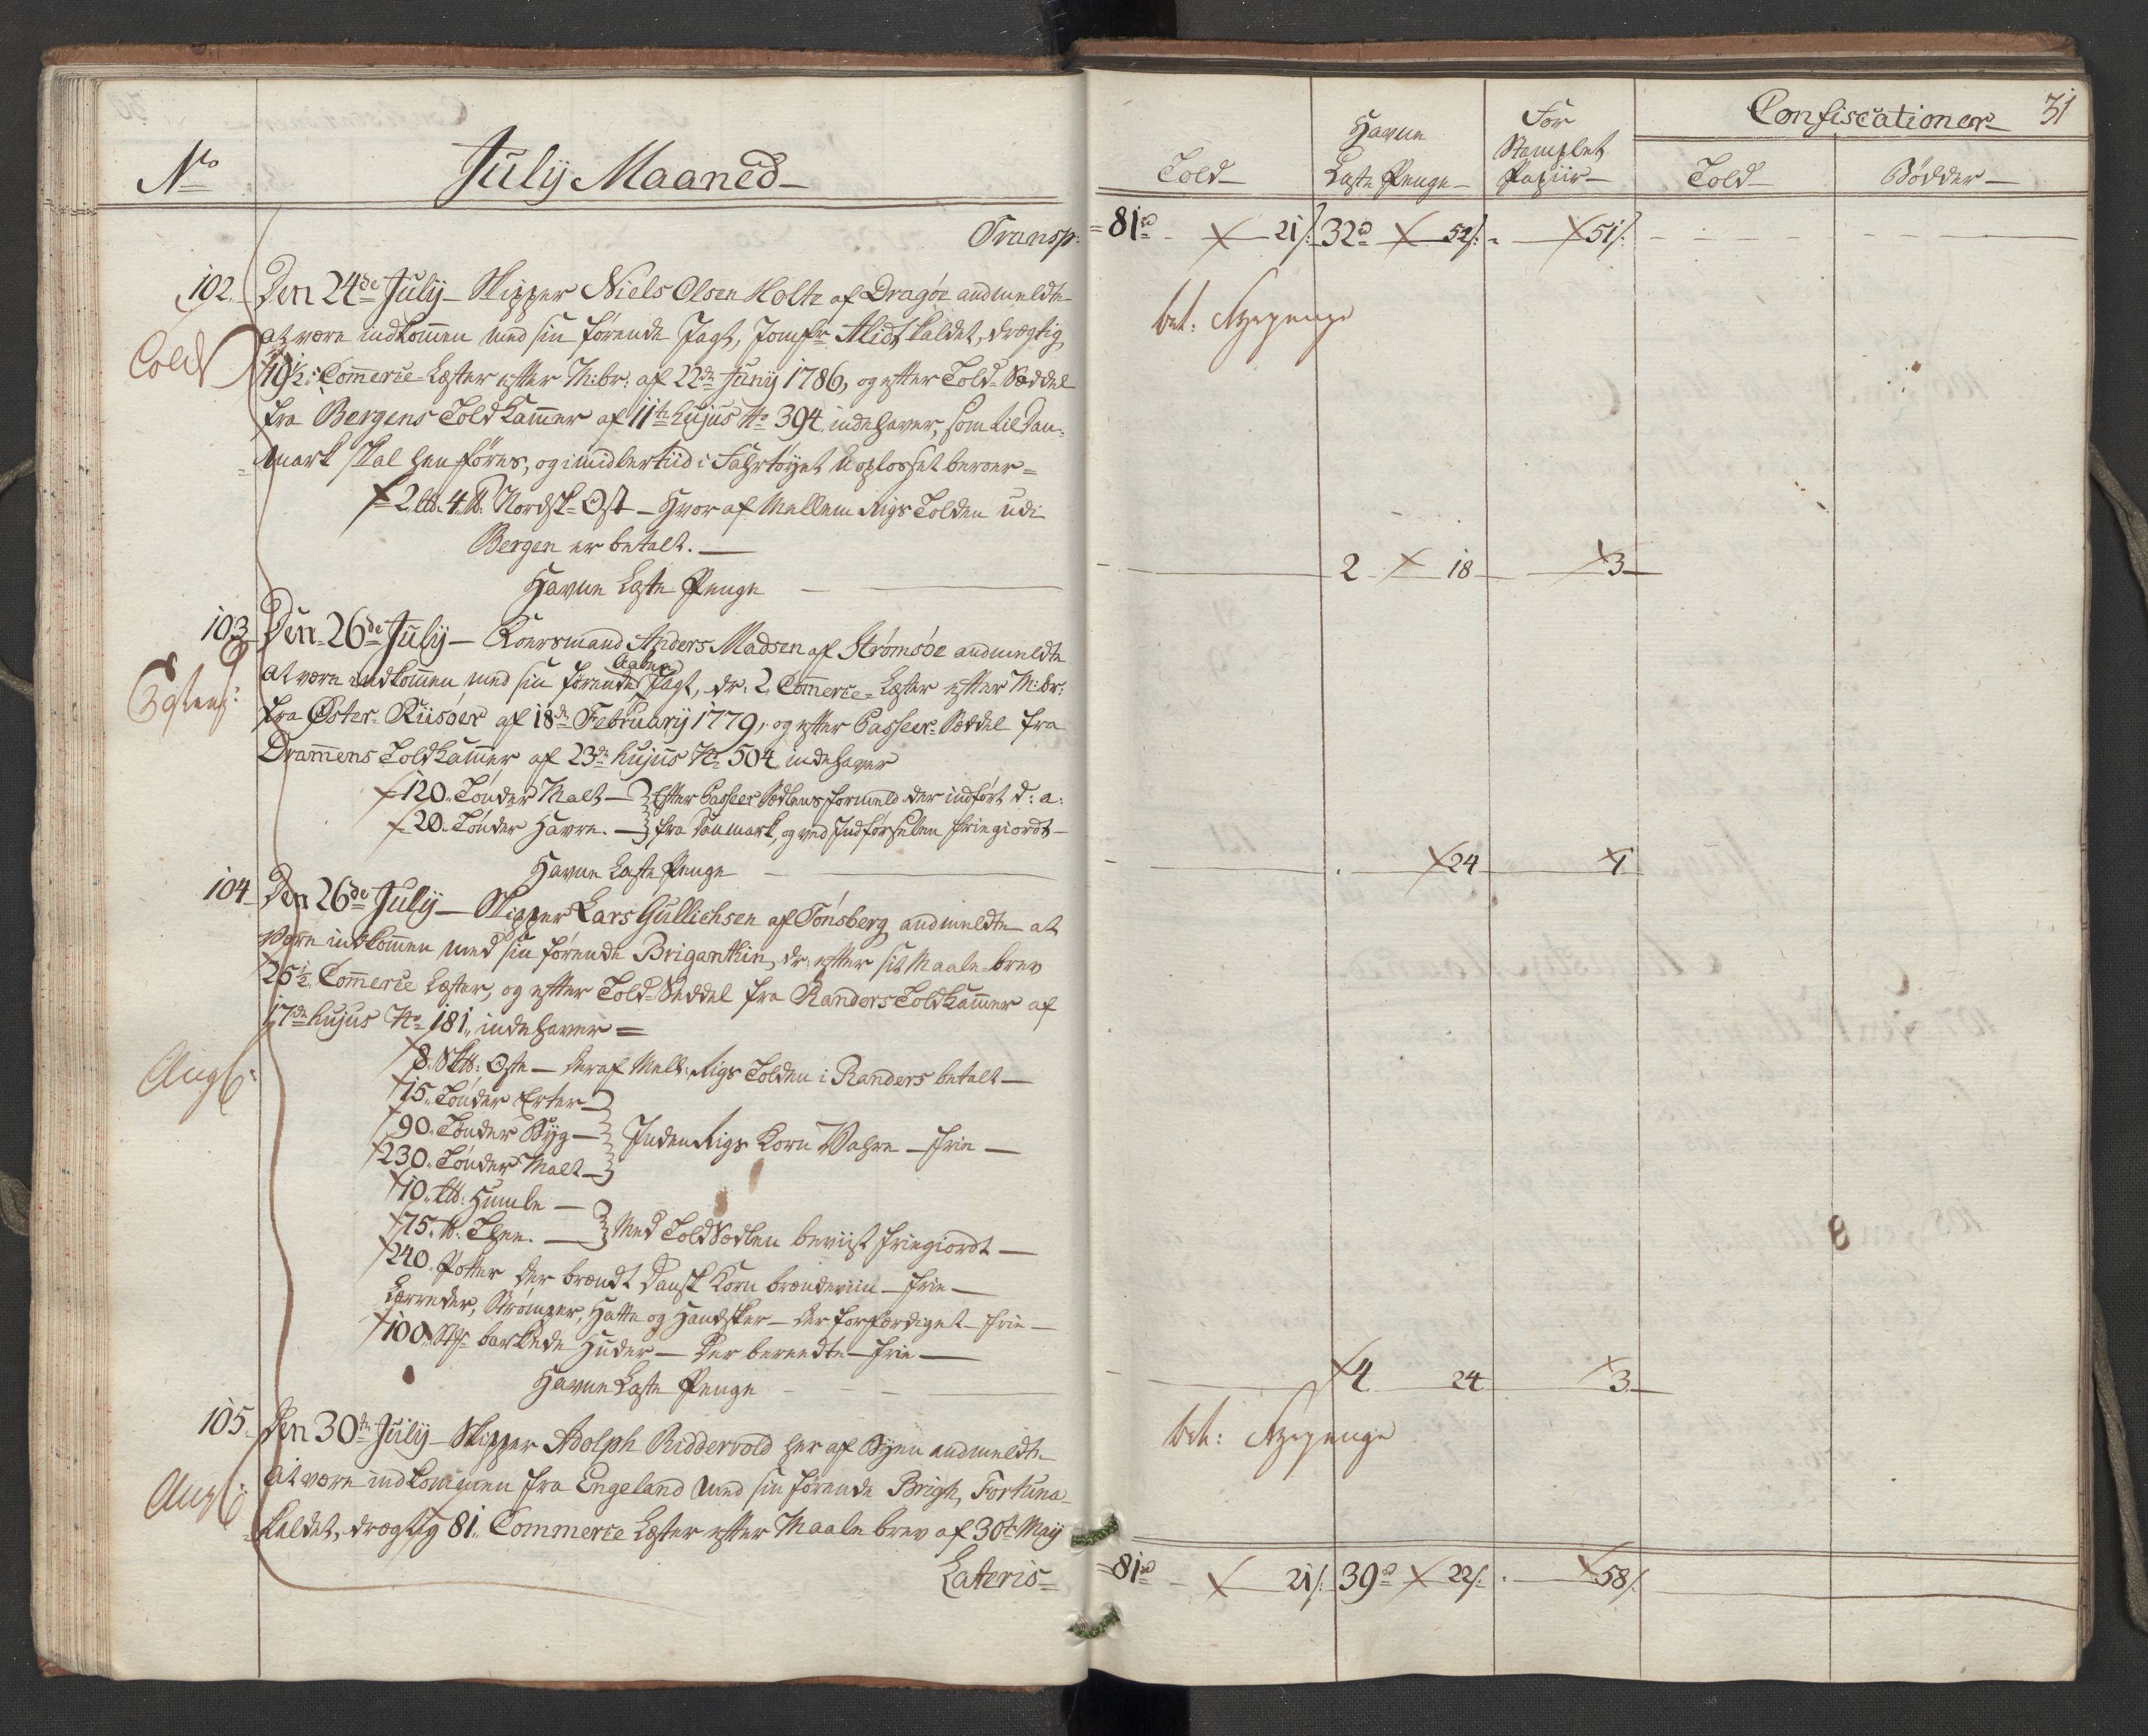 No
July Maaned
Transp:
102. Den 24de July Skipper Niels Olsen Holte af Dragøe andmeldte
at være indkommen med sin førende Jagt, Jomfr Alida kaldet, drægtig
10½ Commerce Læster efter M:br: af 22de Juny 1786, og efter Told-Sæddel
fra Bergens Toldkammer af 11te hujus No 394 indehaver, som til Dan-
mark skal henføres, og imidlertiid i Fahrtøyet uoplosset beroer
2 Lb. 4 lb. Nordsk Ost - Hvoraf Mellem Rigs Tolden udi
Bergen er betalt.
Havne Læste Penge
Told
103 Den 26de July - Koersmand Anders Madsen af Strømsøe andmeldte
Aaben
at være indkommen med sin førende Jagt, dr: 2 Commerce Læster efter M:br:
fra Øster-Riisøer af 18de February 1779, og efter Passeer-Sæddel fra
Drammens Toldkammer af 23de hujus No 504 indehaver
120. Tønder Malt - } Efter Passeer Sædlens formeld der indført d: a:
20. Tønder Havre. - } fra Danmark, og ved Indførselen friegiordt
Havne Læste Penge
104 Den 26de July - Skipper Lars Gullichsen af Tønsberg andmeldte at
være indkommen med sin førende Briganthin, dr: efter sit Maale-brev
25½ Commerce Læster, og efter Told-Seddel fra Randers Toldkammer af
17de hujus No 181 indehaver =
8. Sklb: Oste - deraf Mell: Rigs Tolden i Randers betalt
15. Tønder Erter
90. Tønder Byg - } Inden Rigs Korn Vahre - frie -
230. Tønder Malt
10. Lb: Humle -
75. lb. Thee. - } Med Told Sædlen beviist friegiordt -
240. Potter der brændt Dansk Korn brændeviin - frie -
Lærreder, Strømper, Hatte og Handsker - der forfærdiget - frie -
100 St: barkede Huder - Der beredte - frie -
Havne Læste Penge
Aug
105. Den 30te July - Skipper Adolph Riddervold her af Byen andmeldte
at være indkommen fra Engeland med sin førende Brigh, Fortuna
kaldet, drægtig 81 Commerce Læster efter Maale brev af 30te May
Lateris
Aug
31
Told
Havne
Læste Penge
For
Stemplet
Papiir
Confiscationer
Told
Bødder
81 rd 21 s. 32 rd 52 s. 51 s.
bet:
2 18 3
24 1
4 24 3
bet:
81 rd 21 s. 39 rd 22 s. 58 s.